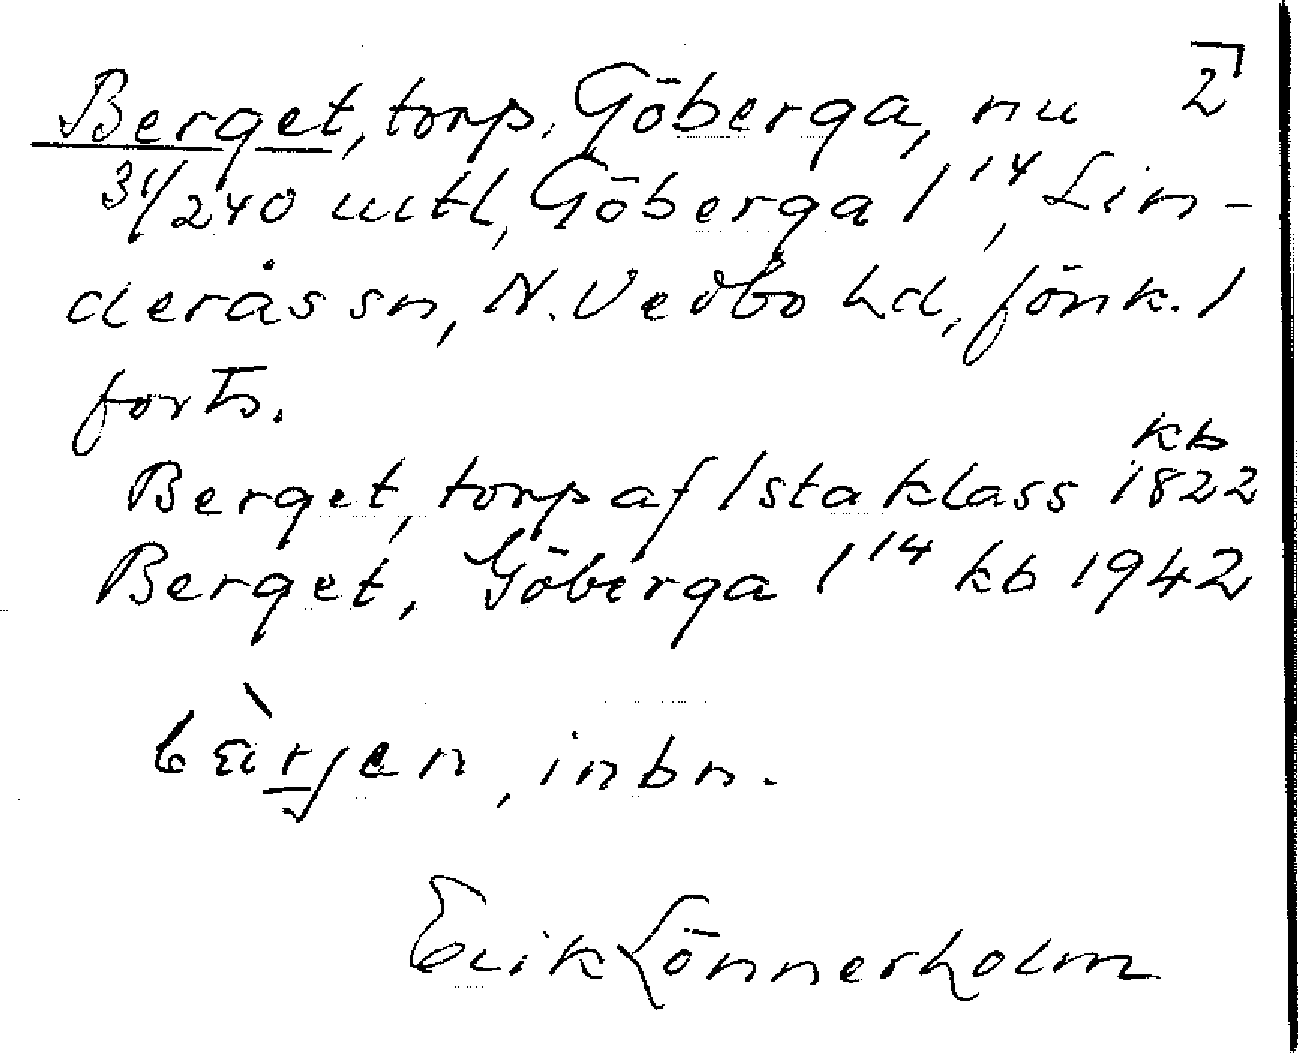 Berget, torp. Göberga, nu 2
31/240 mtl, Göberga 1¹⁴, Lin-
derås sn, N. Vedbo hd, Jönk. l
forts.
Berget, torp af 1sta klass kb 1822
Berget, Göberga 1¹⁴ kb 1942
inbn.
Erik Lönnerholm